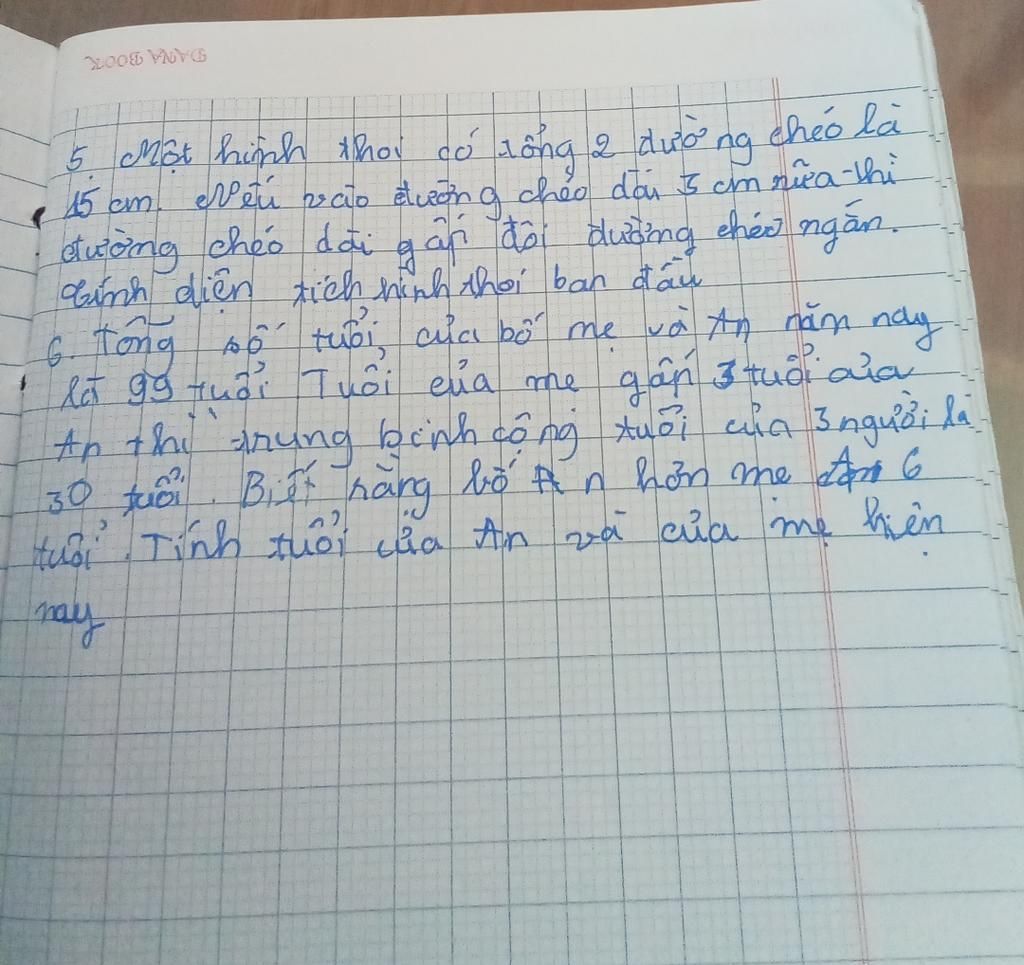 DANA BOOK
5. Một hình thoi có tổng 2 đường chéo là
15 cm. Nếu vào đường chéo dài 3 cm nữa thì
đường chéo dài gấp đôi đường chéo ngắn.
Tính diện tích hình thoi ban đầu
6. Tổng số tuổi của bố mẹ và An năm nay
là 99 tuổi Tuổi của mẹ gấp 3 tuổi của
An thì trung bình cộng tuổi của 3 người là
30 tuổi. Biết rằng bố An hơn mẹ An 6
tuổi. Tính tuổi của An và của mẹ hiện
nay